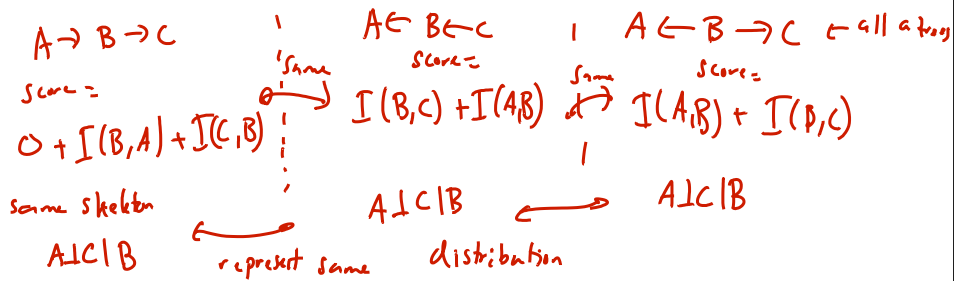 A → B → C
score =
0 + I(B,A) + I(C,B)
same skeleton
A⊥C|B
same
A ← B ← C
score =
I(B,C) + I(A,B)
A⊥C|B
represent same distribution
same
A ← B → C ← all a trees
score =
I(A,B) + I(B,C)
A⊥C|B